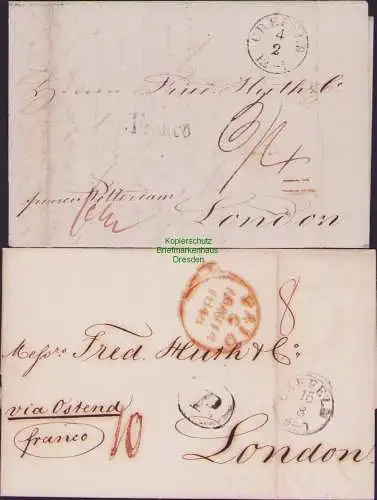 CREFELD
4
2
Herren Fried. Huth & Co
Franco
franco Rotterdam
London
Kopierschutz
Briefmarkenhaus
Dresden
PAID
8
Messrs Fred. Huth & Co.
P
CREFELD
16
8
via Ostend
franco
10
London